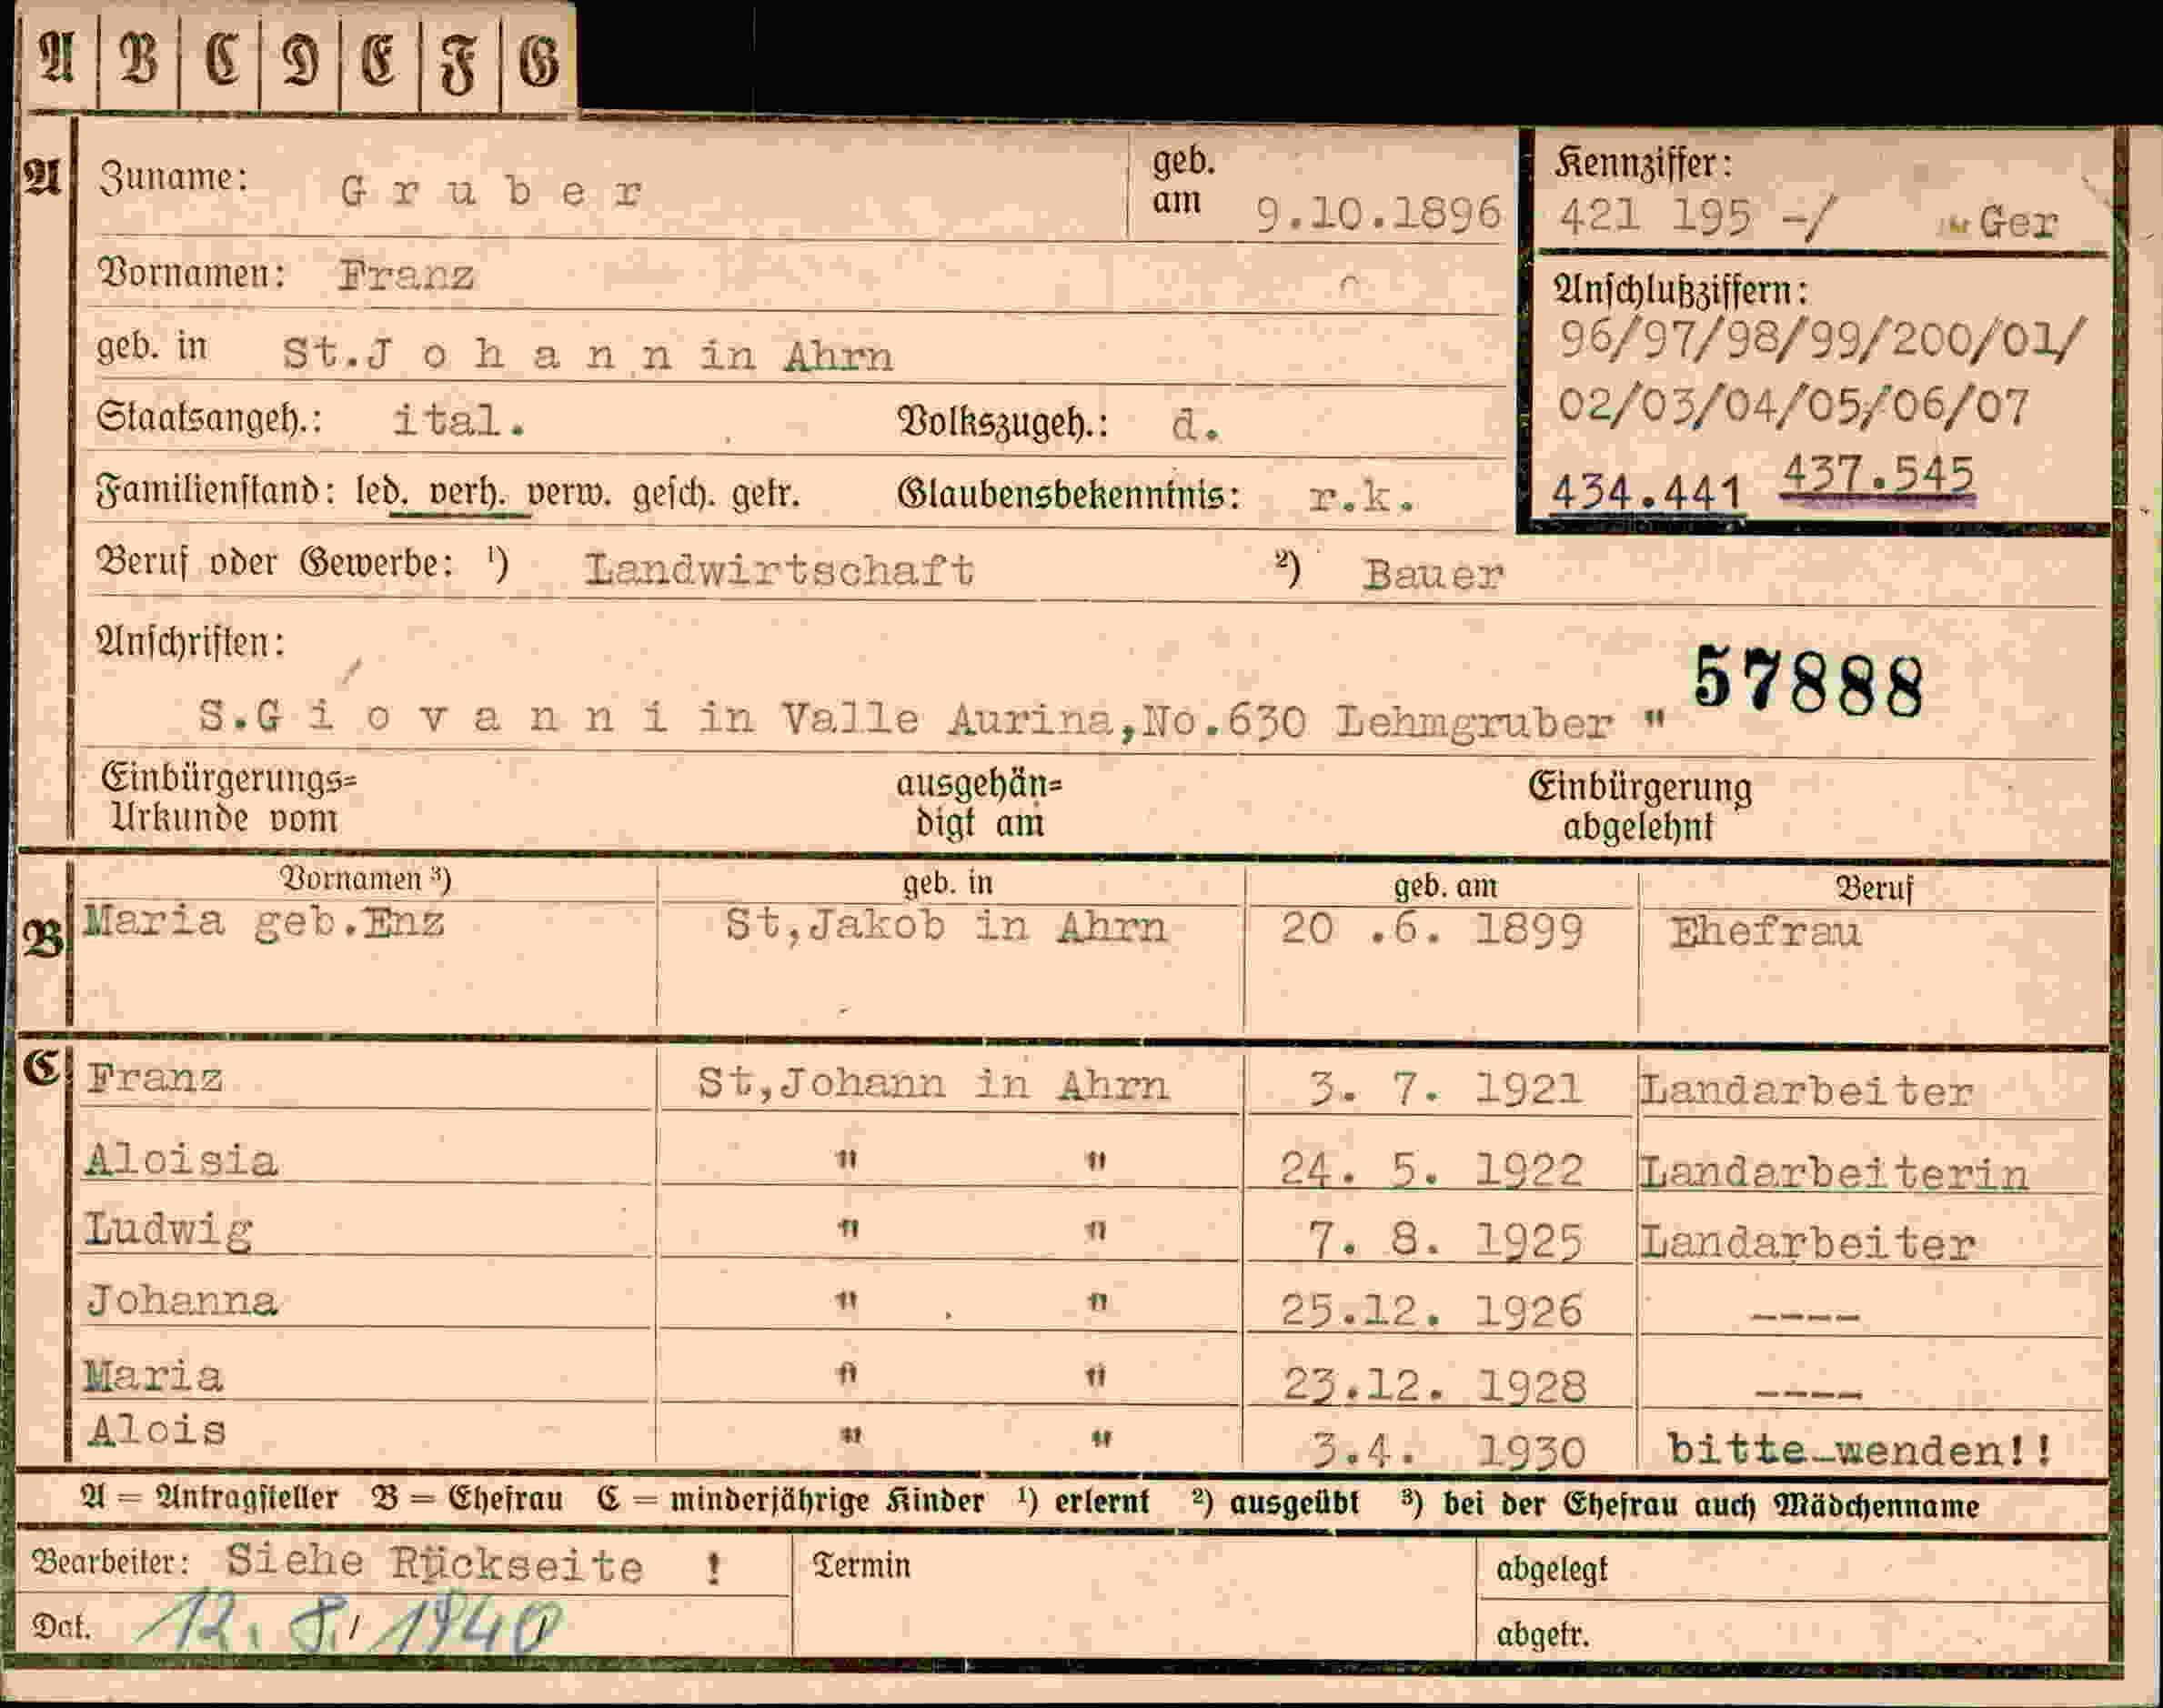 A B C D E F G
A Zuname: G r u b e r geb. am 9.10.1896
Kennziffer:
421 195 -/ Ger
Vornamen: Franz
geb. in St.J o h a n n in Ahrn
Anschlußziffern:
96/97/98/99/200/01/
02/03/04/05/06/07
434.441 437.545
Staatsangeh.: ital. Volkszugeh.: d.
Familienstand: led. verh. verw. gesch. getr. Glaubensbekenntnis: r.k.
Beruf oder Gewerbe: ¹) Landwirtschaft ²) Bauer
Anschriften:
57888
S.G i o v a n n i in Valle Aurina,No.630 Lehmgruber "
Einbürgerungs= ausgehän= Einbürgerung
Urkunde vom digt am abgelehnt
B Vornamen ³) geb. in geb. am Beruf
Maria geb.Enz St,Jakob in Ahrn 20 .6. 1899 Ehefrau
C Franz St,Johann in Ahrn 3. 7. 1921 Landarbeiter
Aloisia " " 24. 5. 1922 Landarbeiterin
Ludwig " " 7. 8. 1925 Landarbeiter
Johanna " " 25.12. 1926 ----
Maria " " 23.12. 1928 ----
Alois " " 3.4. 1930 bitte wenden!!
A = Antragsteller B = Ehefrau C = minderjährige Kinder ¹) erlernt ²) ausgeübt ³) bei der Ehefrau auch Mädchenname
Bearbeiter: Siehe Rückseite ! Termin abgelegt
Dat. 12. 8. 1940 abgetr.